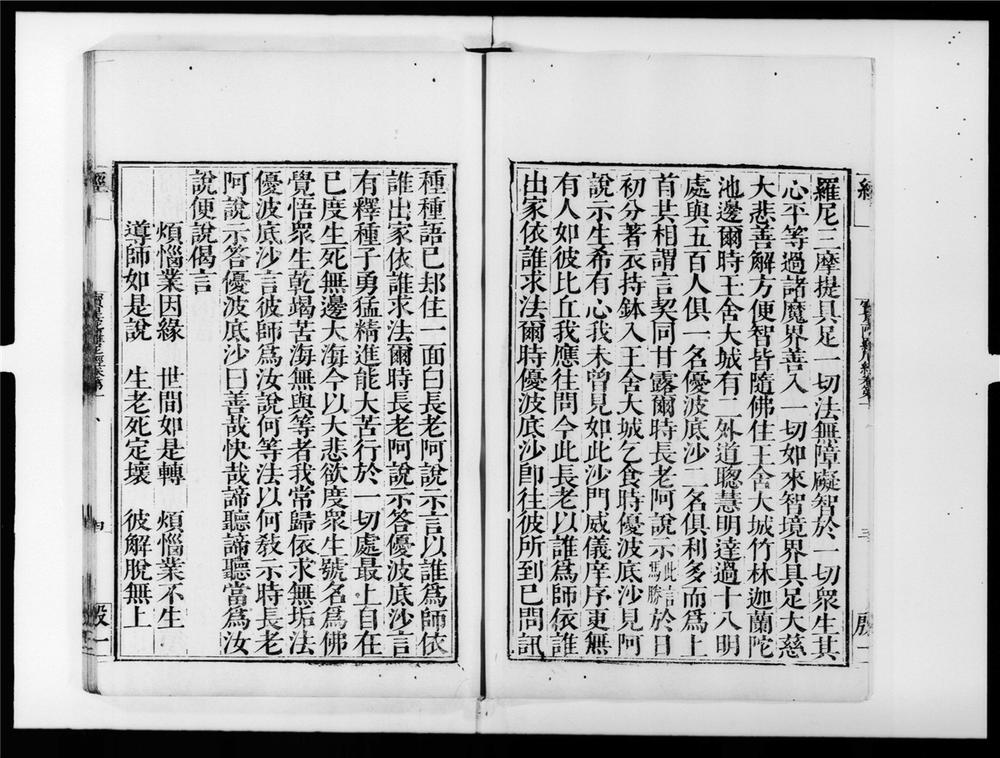 羅尼三摩提具足一切法無障礙智於一切衆生其
心平等過諸魔界善入一切如來智境界具足大慈
大悲善解方便智皆隨佛住王舍大城竹林迦蘭陀
池邊爾時王舍大城有二外道聰慧明達過十八明
處與五百人俱一名優波底沙二名俱利多而爲上
首共相謂言契同甘露爾時長老阿說示此言馬勝於日
初分著衣持鉢入王舍大城乞食時優波底沙見阿
說示生希有心我未曾見如此沙門威儀庠序更無
有人如彼比丘我應往問今此長老以誰爲師依誰
出家依誰求法爾時優波底沙卽往彼所到已問訊
種種語已却住一面白長老阿說示言以誰爲師依
誰出家依誰求法爾時長老阿說示答優波底沙言
有釋種子勇猛精進能大苦行於一切處最上自在
已度生死無邊大海今以大悲欲度衆生號名爲佛
覺悟衆生乾竭苦海無與等者我常歸依求無垢法
優波底沙言彼師爲汝說何等法以何敎示時長老
阿說示答優波底沙曰善哉快哉諦聽諦聽當爲汝
說便說偈言
煩惱業因緣　世間如是轉　煩惱業不生
導師如是說　生老死定壞　彼解脫無上
經